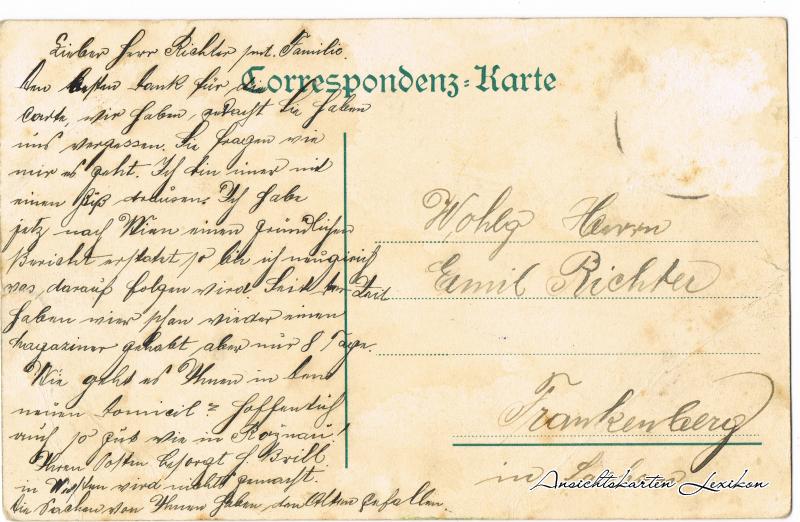 Correspondenz-Karte
Lieber Herr Richter smt. Familie.
Den besten Dank für die
Carte, wir haben, gedacht Sie haben
uns vergessen. Sie fragen wie
mir es geht. Ich bin imer mit
einen Fuß drausen. Ich habe
jetz nach Wien einen gründlichen
Bericht erstatet so bin ich neugirich
was darauf folgen wird. Seit der Zeit
haben wier schon wieder einen
Magaziner gehabt, aber nur 8 Tage.
Wie geht es Ihnen in den
neuen Domicil? Hoffentlich
auch so gut wie in Rožnau!
Ihren Posten besorgt H. Brill
in wird nichts gemacht.
die Sachen von Ihnen haben den Alten gefallen.
Wohlg Herrn
Emil Richter
Frankenberg
in
Ansichtskarten Lexikon